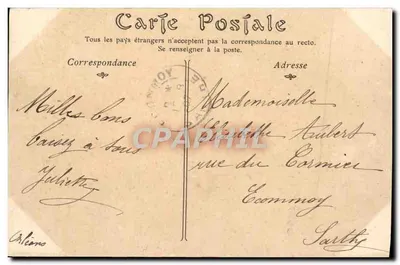 Carte Postale
Tous les pays étrangers n'acceptent pas la correspondance au recto.
Se renseigner à la poste.
Correspondance
Adresse
Milles bons
baisez à tous
Juliette
Orléans
Mademoiselle
Aubert
rue du Cormier
Ecommoy
Sarthe
CARTE POSTALE